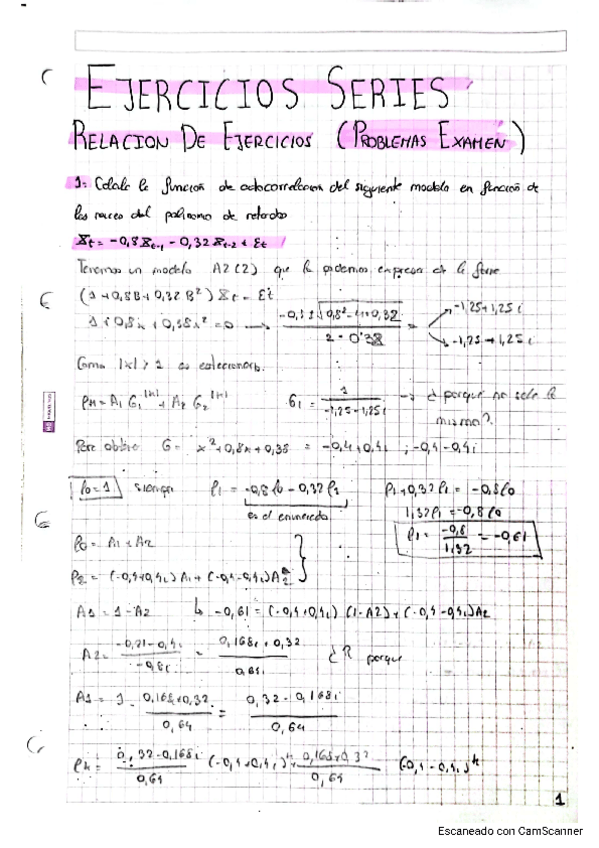 EJERCICIOS SERIES
RELACION DE EJERCICIOS (PROBLEMAS EXAMEN)
1- Calcule la función de autocorrelacion del siguiente modelo en función de
las raices del polinomo de retardo
Xt = -0,8Xt-1 - 0,32Xt-2 + Et
Tenemos un modelo A2(2) que lo podemos expresar de la forma
(1+0,8B+0,32B²)Xt = Et
-1,25+1,25i
-1,25-1,25i
Como |x| > 1 es estacionario.
ρk = A1 G1^|k| + A2 G2^|k| G1 = 1/(-1,25-1,25i) → ¿porque no sale lo
mismo?
Para obtener G = x²+0,8x+0,38 = -0,4+0,4i ; -0,4-0,4i
ρ0=1 siempre ρ1 = -0,8ρ0 - 0,32ρ1 ρ1+0,32ρ1 = -0,8ρ0
es el enunciado 1,32ρ1 = -0,8ρ0
ρ1 = -0,8/1,32 = -0,61
ρ0 = A1 + A2
ρ2 = (-0,4+0,4i)A1 + (-0,4-0,4i)A2
A1 = 1-A2 ↳ -0,61 = (-0,4+0,4i)(1-A2)+(-0,4-0,4i)A2
A2 = (-0,21-0,4i)/(-0,8i) = (0,168i+0,32)/0,64i ¿R porque
A1 = 1 - (0,168i+0,32)/0,64 = (0,32-0,168i)/0,64
ρk = (0,32-0,168i)/0,64 (-0,4+0,4i)^k + (0,168+0,32)/0,64 (-0,4-0,4i)^k
1
Escaneado con CamScanner